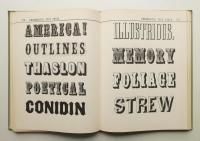 AMERICA!
OUTLINES
THASLON
POETICAL
CONIDIN
MEMORY
FOLIAGE
STREW